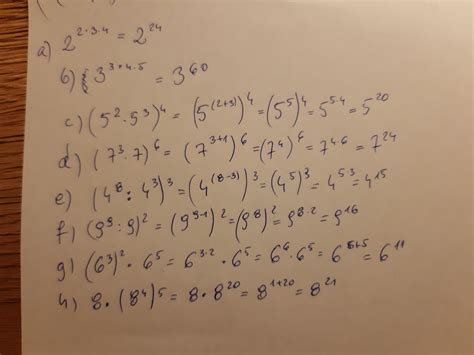 a) 2^(2·3·4) = 2^24
b) 3^(3·4·5) = 3^60
c) (5^2 · 5^3)^4 = (5^(2+3))^4 = (5^5)^4 = 5^(5·4) = 5^20
d) (7^3 · 7)^6 = (7^(3+1))^6 = (7^4)^6 = 7^(4·6) = 7^24
e) (4^8 : 4^3)^3 = (4^(8-3))^3 = (4^5)^3 = 4^(5·3) = 4^15
f) (9^9 : 9)^2 = (9^(9-1))^2 = (9^8)^2 = 9^(8·2) = 9^16
g) (6^3)^2 · 6^5 = 6^(3·2) · 6^5 = 6^6 · 6^5 = 6^(6+5) = 6^11
h) 8 · (8^4)^5 = 8 · 8^20 = 8^(1+20) = 8^21